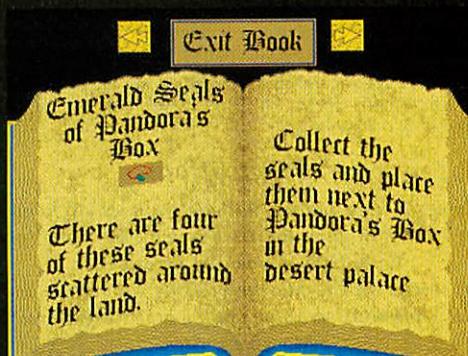 Exit Book
Emerald Seals
of Pandora's
Box
There are four
of these seals
scattered around
the land.
Collect the
seals and place
them next to
Pandora's Box
in the
desert palace